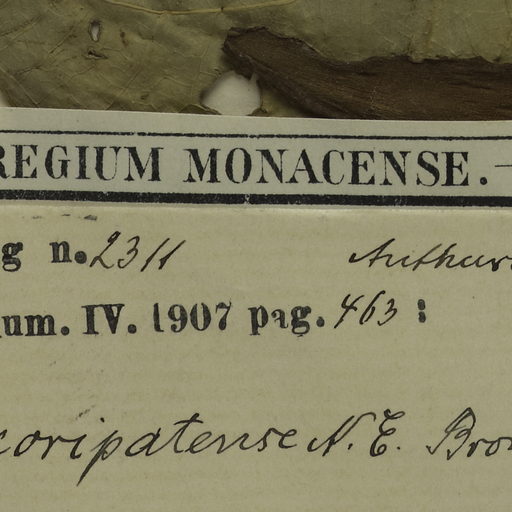 REGIUM MONACENSE.
g n. 2311 Anthur
um. IV. 1907 pag. 463 :
coripatense N. E. Bro